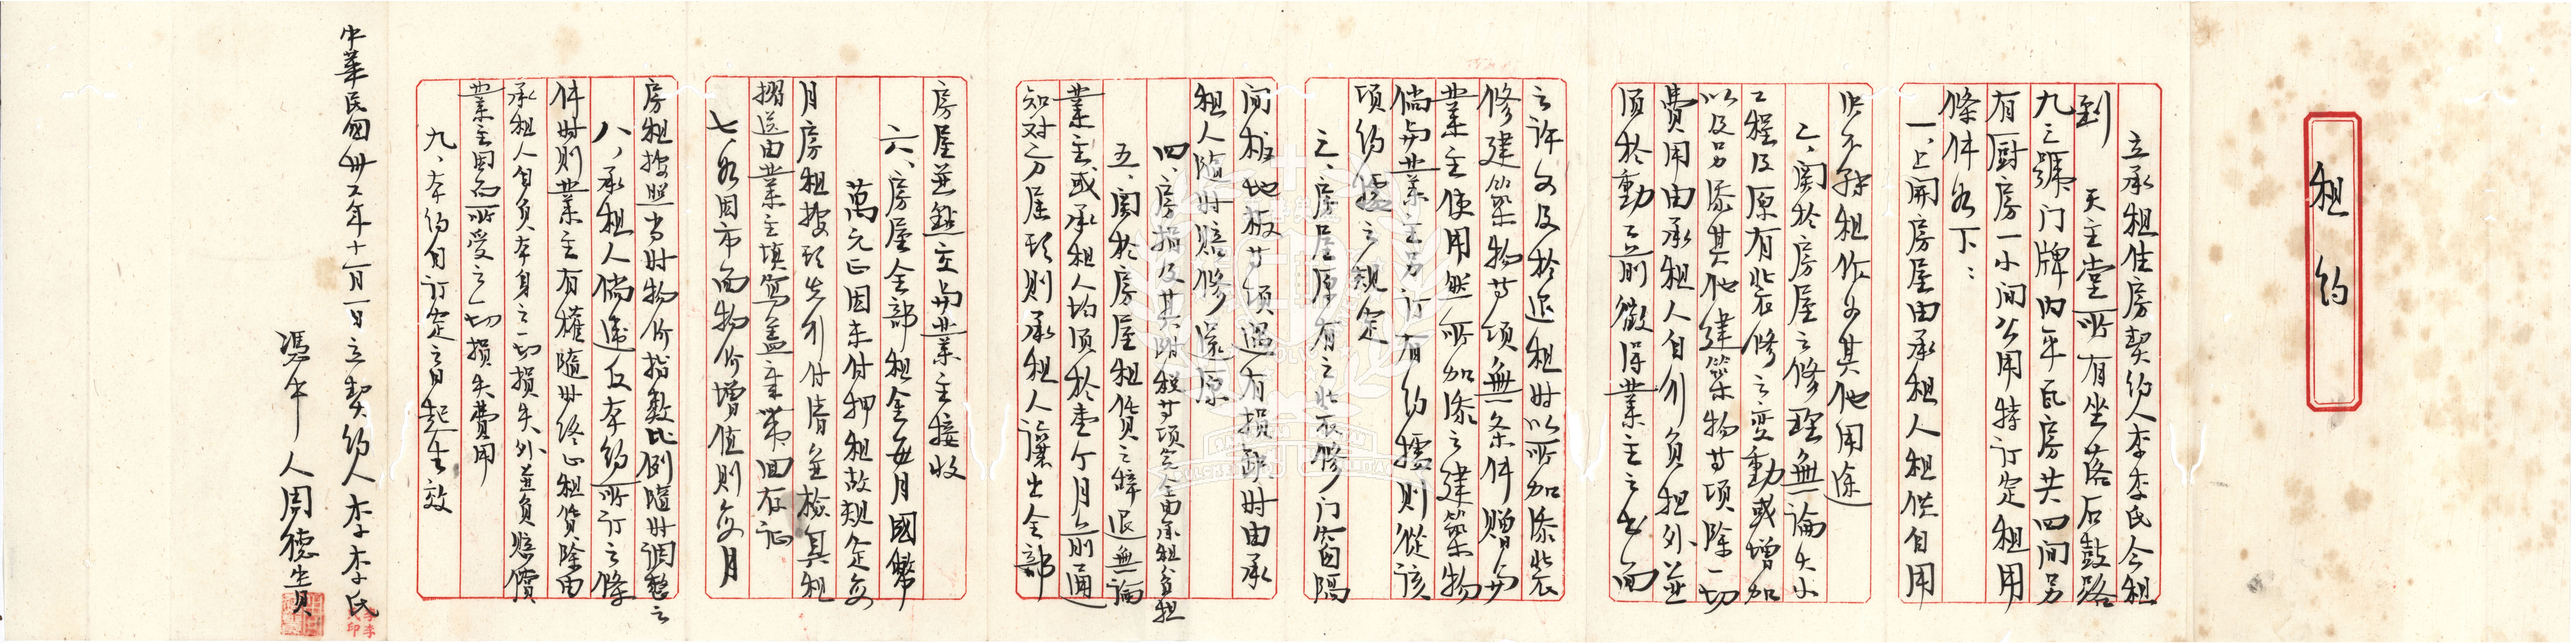 租約
立承租住房契約人李李氏今租
到
天主堂所有坐落石鼓路
九三號门牌內平瓦房共四间另
有厨房一小间公用特订定租用
條件如下：
一、上開房屋由承租人租供自用
供不移租作为其他用途
二、関於房屋之修理無論大小
工程及原有装修之变動或增加
以及另添其他建築物等項除一切
費用由承租人自行負担外並
须於動工前徵得業主之书面
之许可及於退租时以所加添装
修建築物等項無条件赠与
業主使用然所加添之建築物
倘与業主另订有约據則從该
項约據之規定
三、房屋原有之装修门窗隔
间板地板等項遇有損缺时由承
租人隨时赔修還原
四、房捐及其附税等項完全由承租负担
五、関於房屋租賃之辞退無論
業主或承租人均须於壹个月之前通
知对方屆期則承租人讓出全部
房屋並點交与業主接收
六、房屋全部租金每月國幣
萬元正因未付押租故規定每
月房租按期先行付清並检具租
摺送由業主填寫盖章帶回存证
七、如因市面物价增值則每月
房租按照当时物价指数比例隨时调整之
八、承租人倘違反本約所订之條
件时則業主有權隨时终止租賃除由
承租人自負本身之一切損失外並負賠償
業主因而所受之一切損失費用
九、本约自订定之日起生效
中華民国卅六年十一月一日立契约人李李氏
憑中人周德生